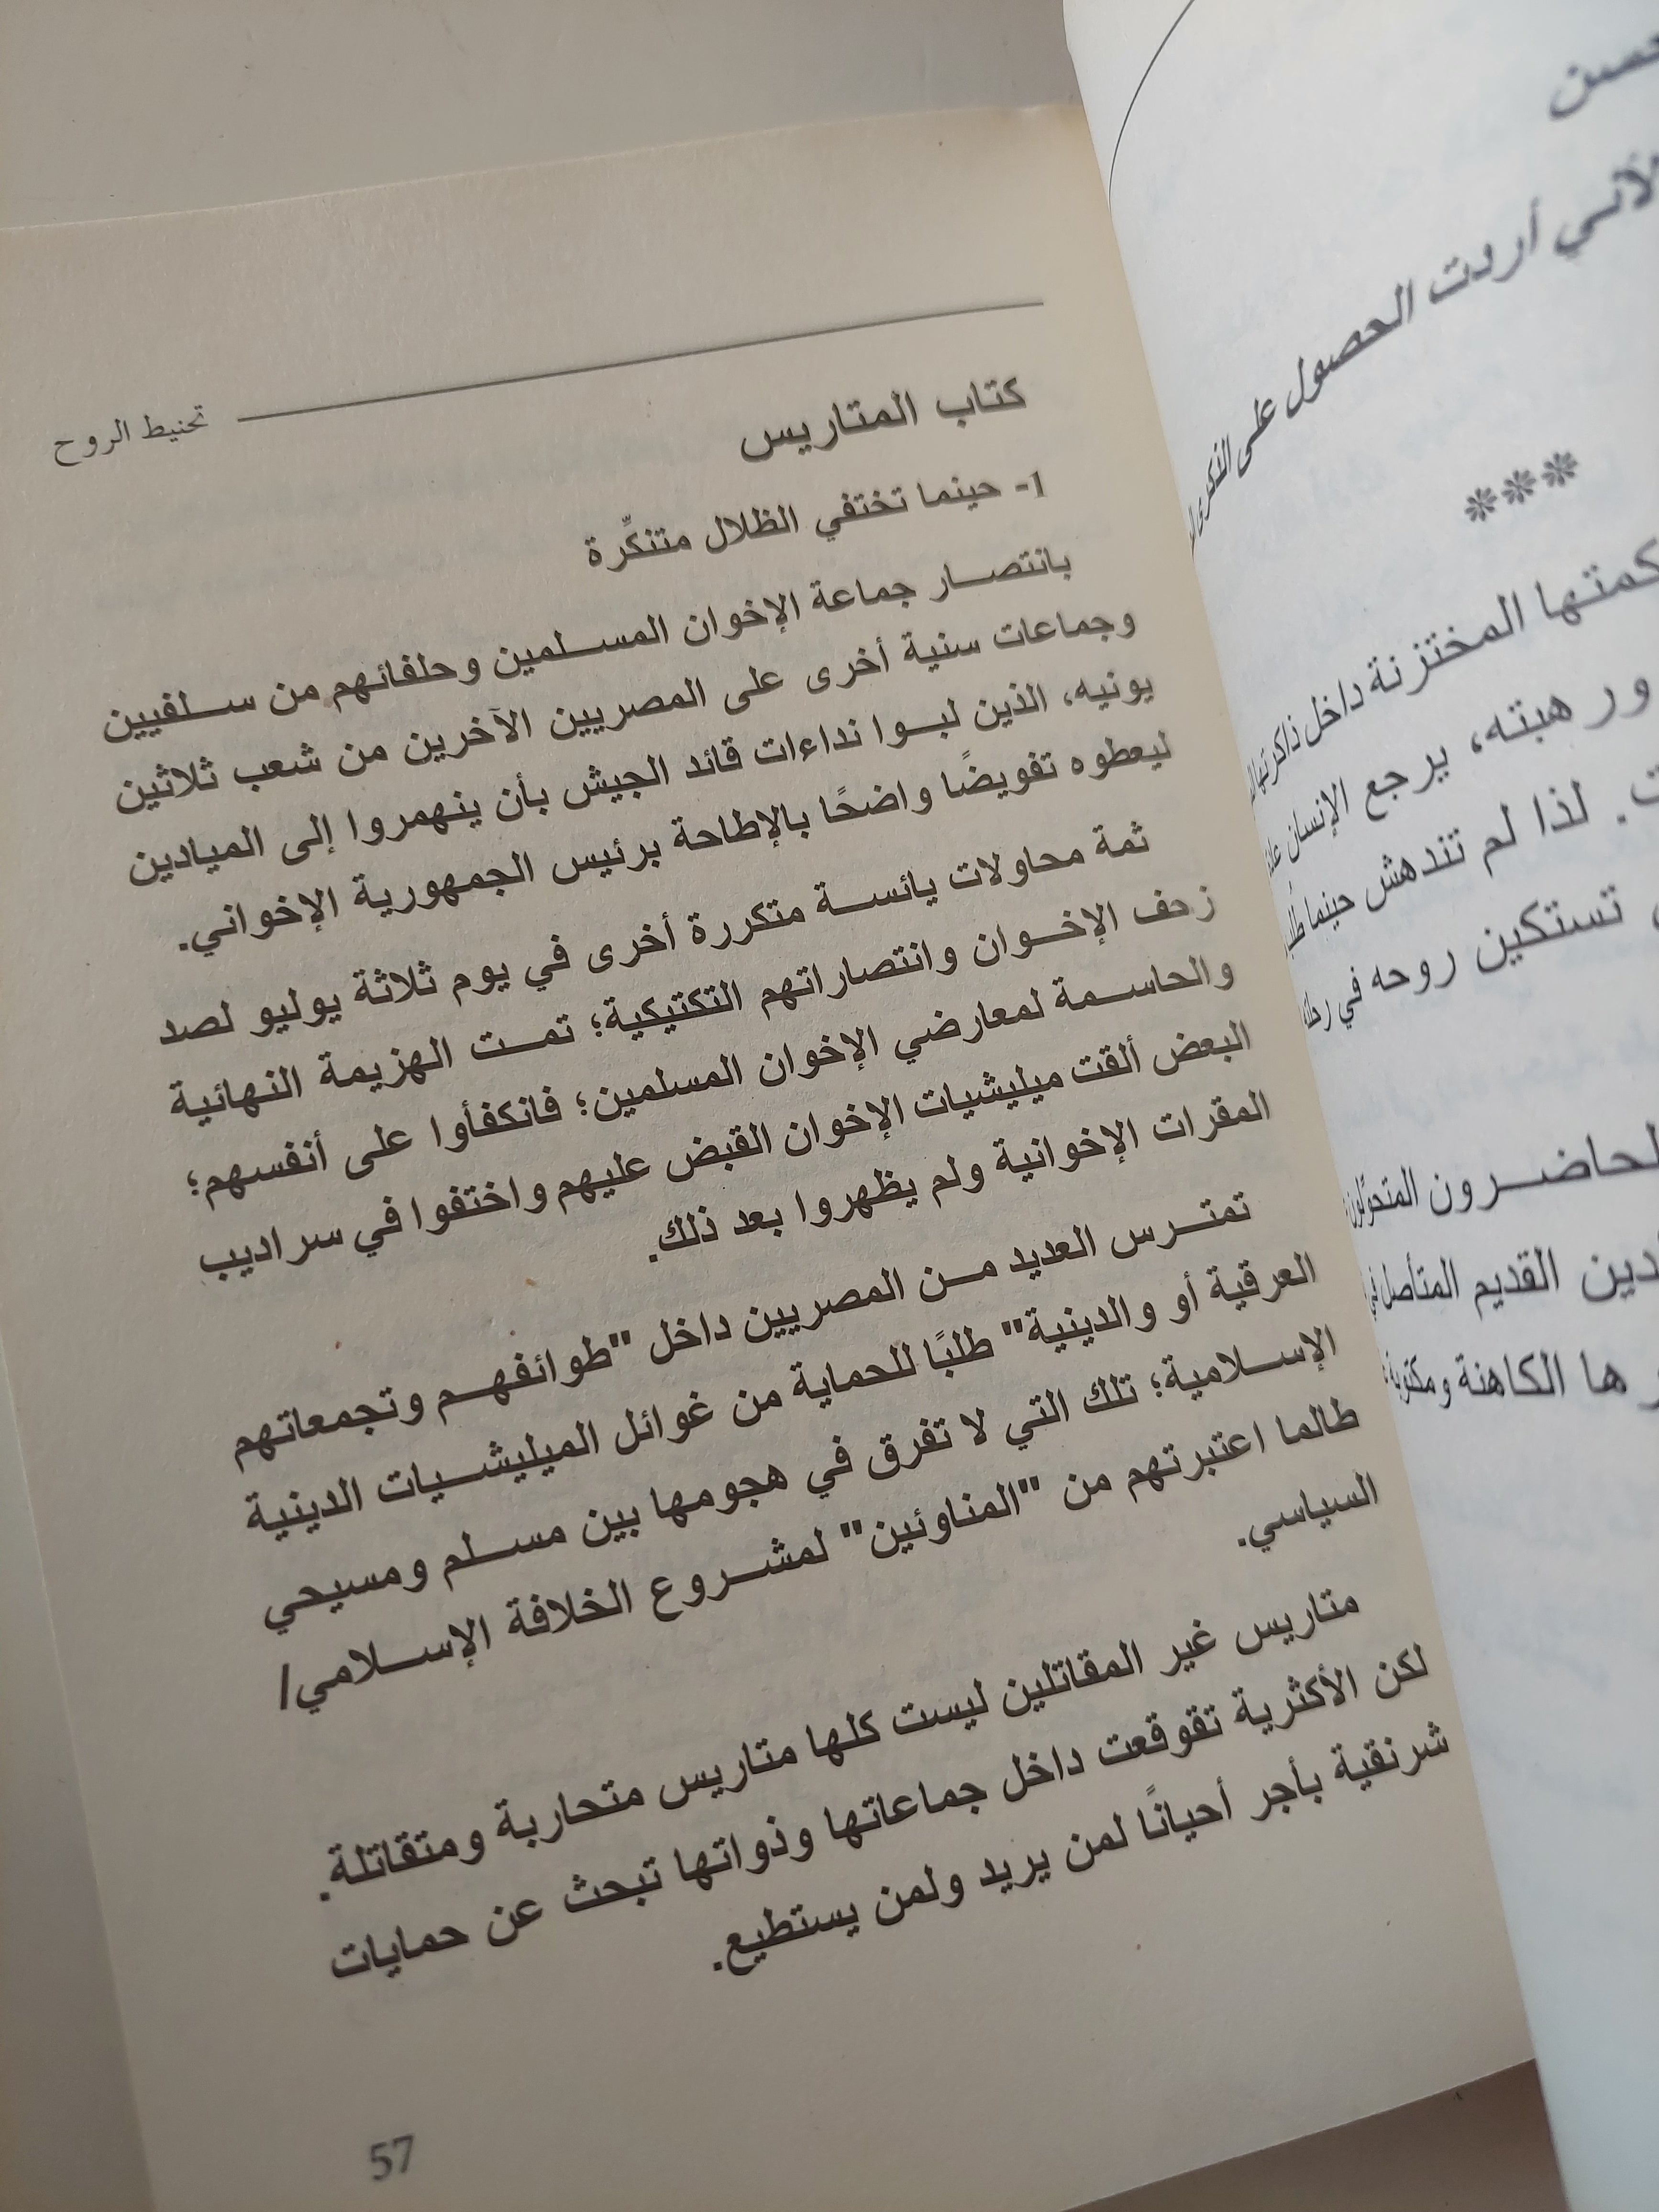 تحنيط الروح
كتاب المتاريس
1- حينما تختفي الظلال متنكِّرة
بانتصـــار جماعة الإخوان المســـلمين وحلفائهم من ســـلفيين
وجماعات سنية أخرى على المصريين الآخرين من شعب ثلاثين
يونيه، الذين لبـــوا نداءات قائد الجيش بأن ينهمروا إلى الميادين
ليعطوه تفويضًا واضحًا بالإطاحة برئيس الجمهورية الإخواني.
ثمة محاولات يائســـة متكررة أخرى في يوم ثلاثة يوليو لصد
زحف الإخـــوان وانتصاراتهم التكتيكية؛ تمـــت الهزيمة النهائية
والحاســـمة لمعارضي الإخوان المسلمين؛ فانكفأوا على أنفسهم؛
البعض ألقت ميليشيات الإخوان القبض عليهم واختفوا في سراديب
المقرات الإخوانية ولم يظهروا بعد ذلك.
تمتـــرس العديد مـــن المصريين داخل "طوائفهـــم وتجمعاتهم
العرقية أو والدينية" طلبًا للحماية من غوائل الميليشـــيات الدينية
الإســـلامية؛ تلك التي لا تفرق في هجومها بين مســـلم ومسيحي
طالما اعتبرتهم من "المناوئين" لمشـــروع الخلافة الإســـلامي/
السياسي.
متاريس غير المقاتلين ليست كلها متاريس متحاربة ومتقاتلة.
لكن الأكثرية تقوقعت داخل جماعاتها وذواتها تبحث عن حمايات
شرنقية بأجر أحيانًا لمن يريد ولمن يستطيع.
57
لأنني أردت الحصول على
***
المختزنة داخل ذاكرتها
ورهبته، يرجع الإنسان
لذا لم تندهش حينما
تستكين روحه في
الحاضـــرون المتحوِّلون
القديم المتأصل في
الكاهنة